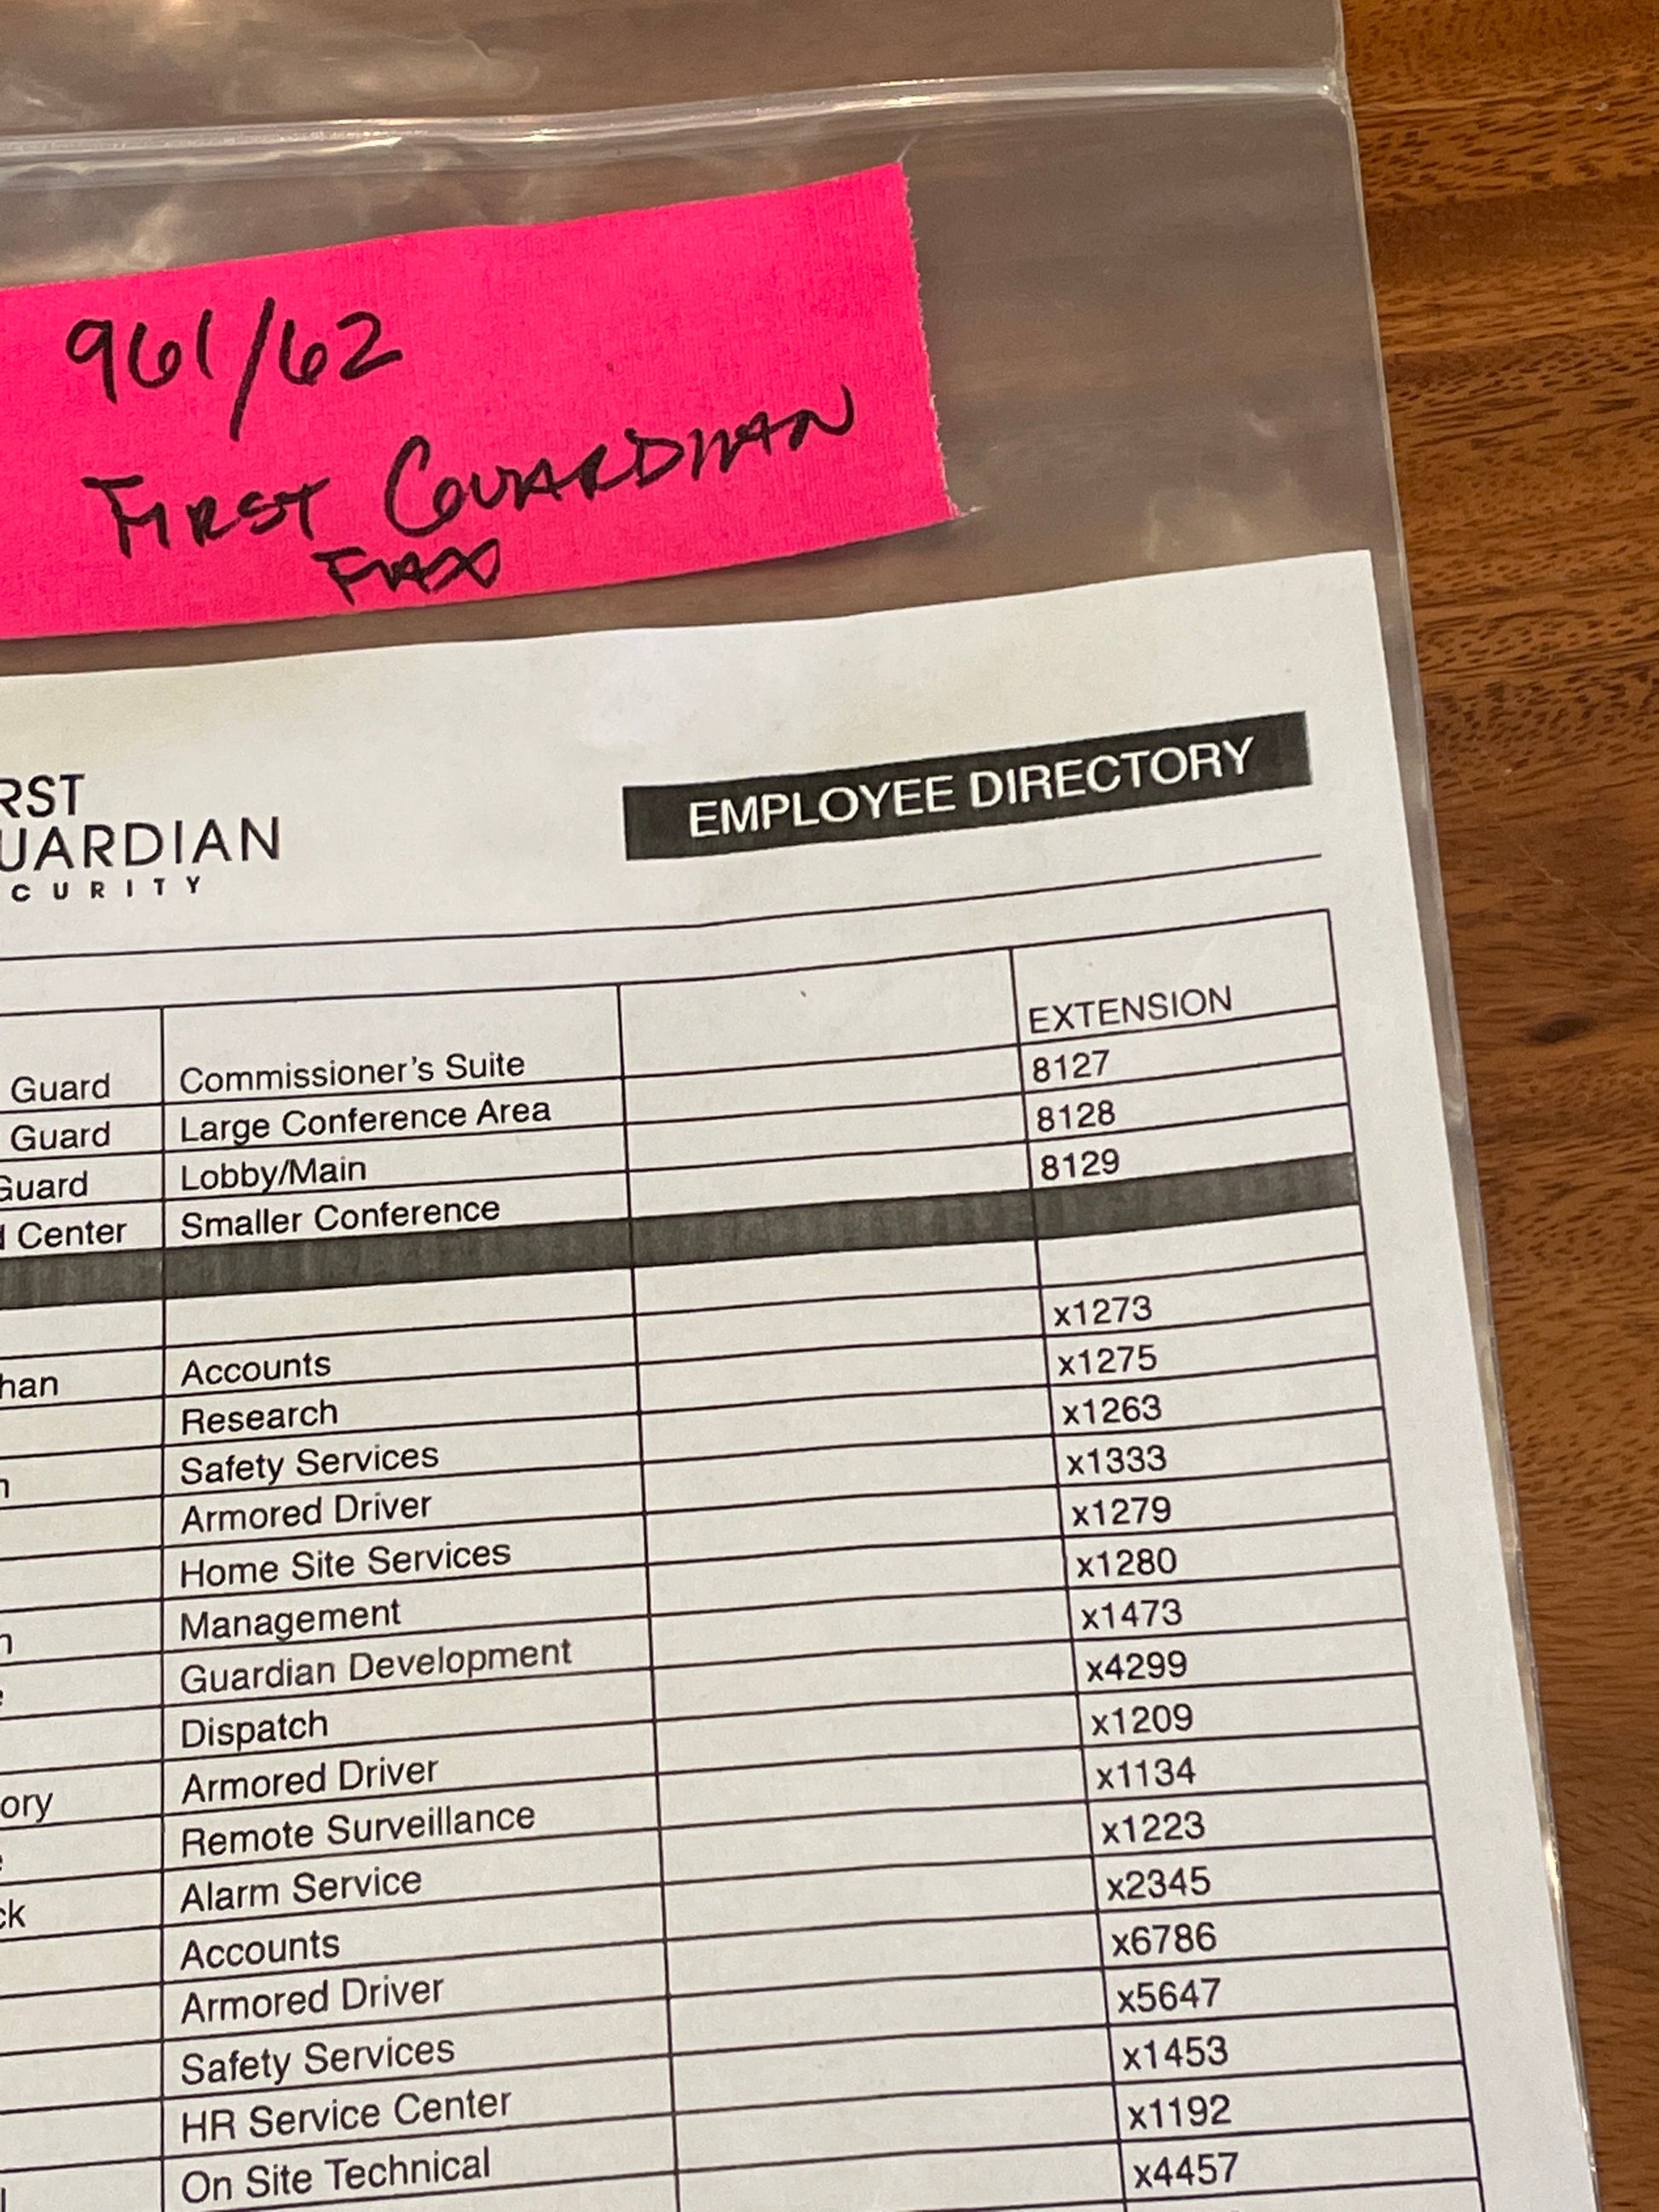 961/62
FIRST GUARDIAN
FAX
RST
UARDIAN
CURITY
EMPLOYEE DIRECTORY
Guard Commissioner's Suite EXTENSION
Guard Large Conference Area 8127
Guard Lobby/Main 8128
Center Smaller Conference 8129
han Accounts x1273
Research x1275
n Safety Services x1263
Armored Driver x1333
Home Site Services x1279
n Management x1280
Guardian Development x1473
Dispatch x4299
ory Armored Driver x1209
Remote Surveillance x1134
ck Alarm Service x1223
Accounts x2345
Armored Driver x6786
Safety Services x5647
HR Service Center x1453
On Site Technical x1192
x4457